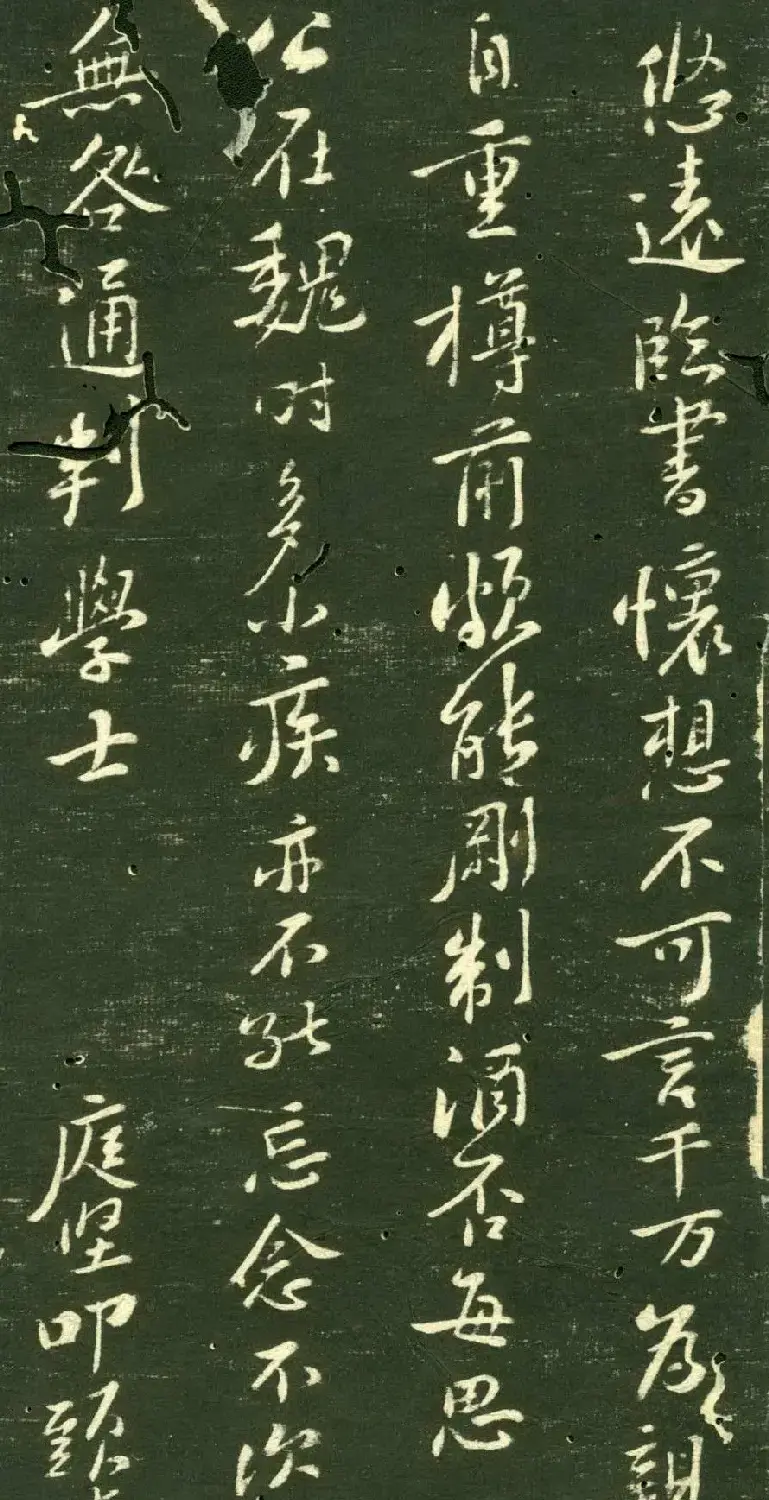 悠遠臨書懷想不可言千万為親
自重樽前頗能剛制酒否每思
公在魏时多小疾亦不能忘念不次
無咎通判學士 庭坚叩頭